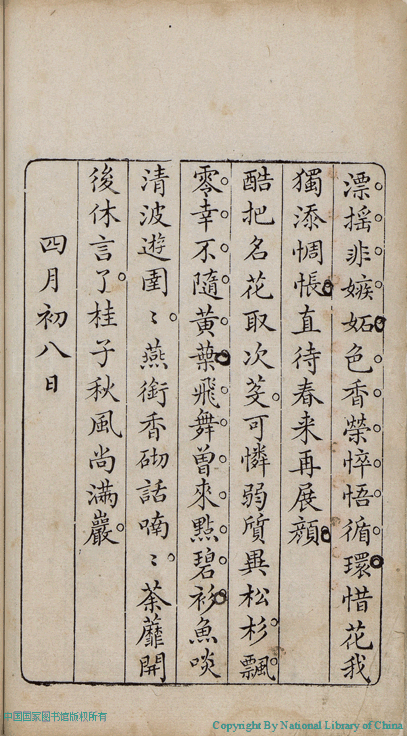 漂搖非嫉妬色香榮悴悟循環惜花我
獨添惆悵直待春来再展顔
酷把名花取次芟可憐弱質異松杉飄
零幸不隨黄葉飛舞曾來點碧衫魚啖
清波遊圉〻燕銜香砌話喃〻荼蘼開
後休言了桂子秋風尚滿巖
四月初八日
中国国家图书馆版权所有
Copyright By National Library of China